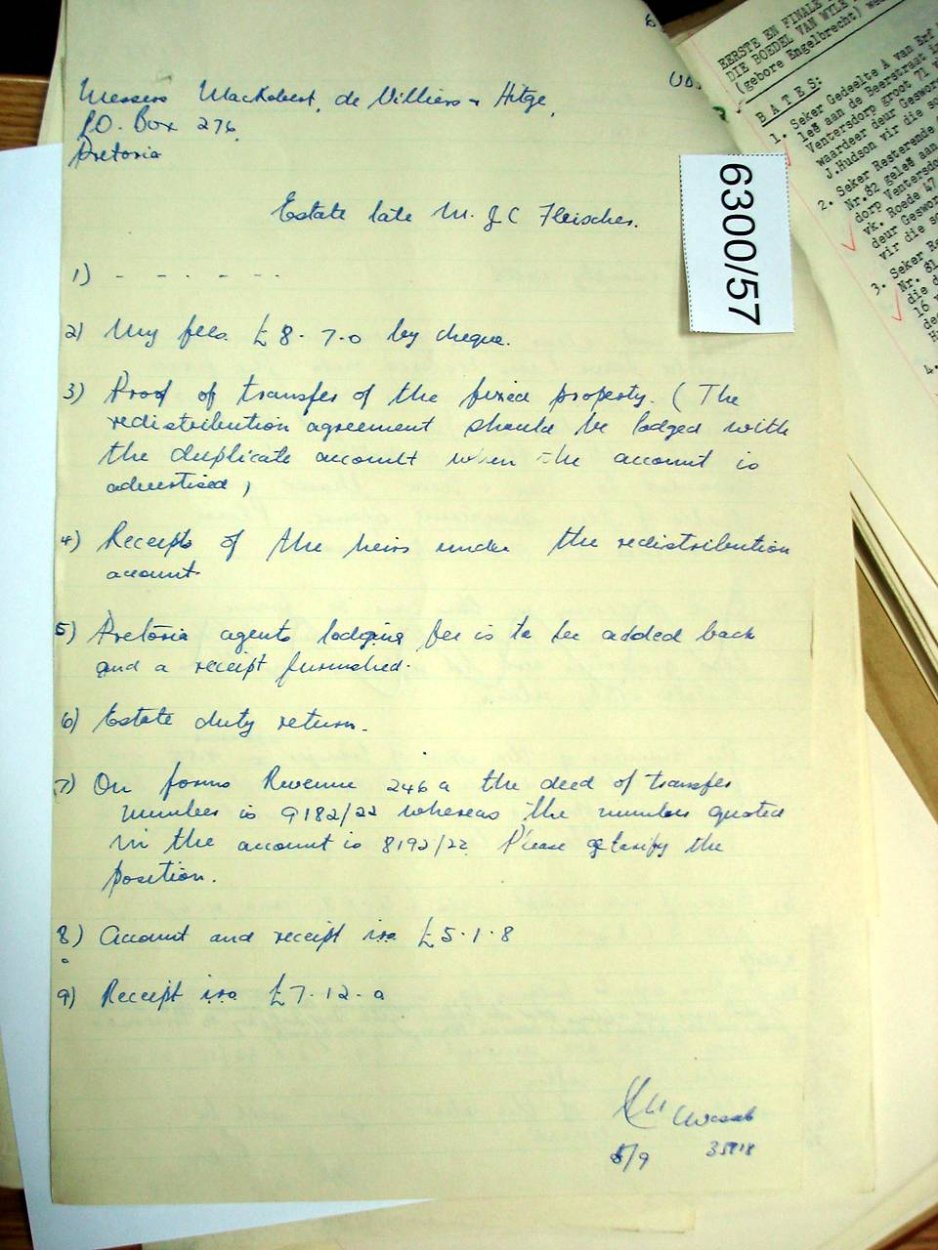 Messers MacRobert, de Villiers & Hitge,
P.O. Box 276
Pretoria
Estate late M. J C Fleischer.
6300/57
1) - - - - - -
2) My fees £8-7-0 by cheque.
3) Proof of transfer of the fixed property. (The
redistribution agreement should be lodged with
the duplicate account when the account is
advertised)
4) Receipts of the heirs under the redistribution
account
5) Pretoria agents lodging fee is to be added back
and a receipt furnished.
6) Estate duty return.
7) On forms Revenue 246a the deed of transfer
number is 9182/22 whereas the number quoted
in the account is 8192/22 Please the
position.
8) Account and receipt iro £5.1.8
9) Receipt iro £7.12.9
5/9
EERSTE EN FINALE
DIE BOEDEL VAN WYLE
(gebore Engelbrecht)
BATES:
1. Seker Gedeelte A van Erf
leë aan de Beerstraat
Ventersdorp groot 71
waardeer deur Geswor
J.Hudson vir die
2. Seker Resterende
Nr.82 geleë aan
dorp Ventersdo
vk. Roede 47
deur Geswor
vir die
3. Seker Re
Nr. 81
die
16
4.